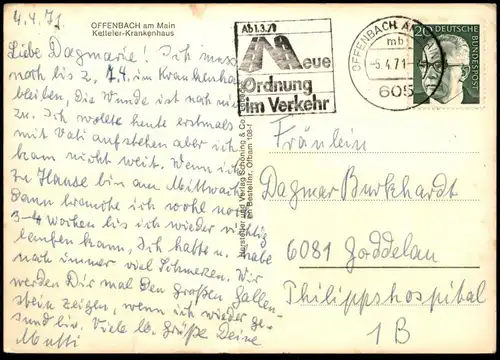 4.4.71
OFFENBACH am Main
Ketteler-Krankenhaus
Liebe Dagmarie! Ich muss
noch bis z. 7.4. im Krankenhaus
bleiben, Die Wunde ist noch nicht
zu. Ich wollte heute erstmals
mit Vati aufstehen aber ich
kam nicht weit. Wenn ich
zu Hause bin am Mittwoch
dann brauche ich wohl noch
3-4 Wochen bis ich wieder richtig
laufen kann. Ich hatte u. habe
noch immer viel Schmerzen. Wir
werden Dir mal den großen Gallen-
stein zeigen, wenn ich wieder ge-
sund bin. Viele lb. Grüße Deine
Mutti
Hersteller und Verlag Schöning & Co
Bestellnr. Offbam 108-f
Ab 1.3.71
Neue
Ordnung
im Verkehr
OFFENBACH AM MAIN
mb
-5.4.71
605
20 DEUTSCHE
BUNDESPOST
Fräulein
Dagmar Burkhardt
6081 Goddelau
Philippshospital
1B